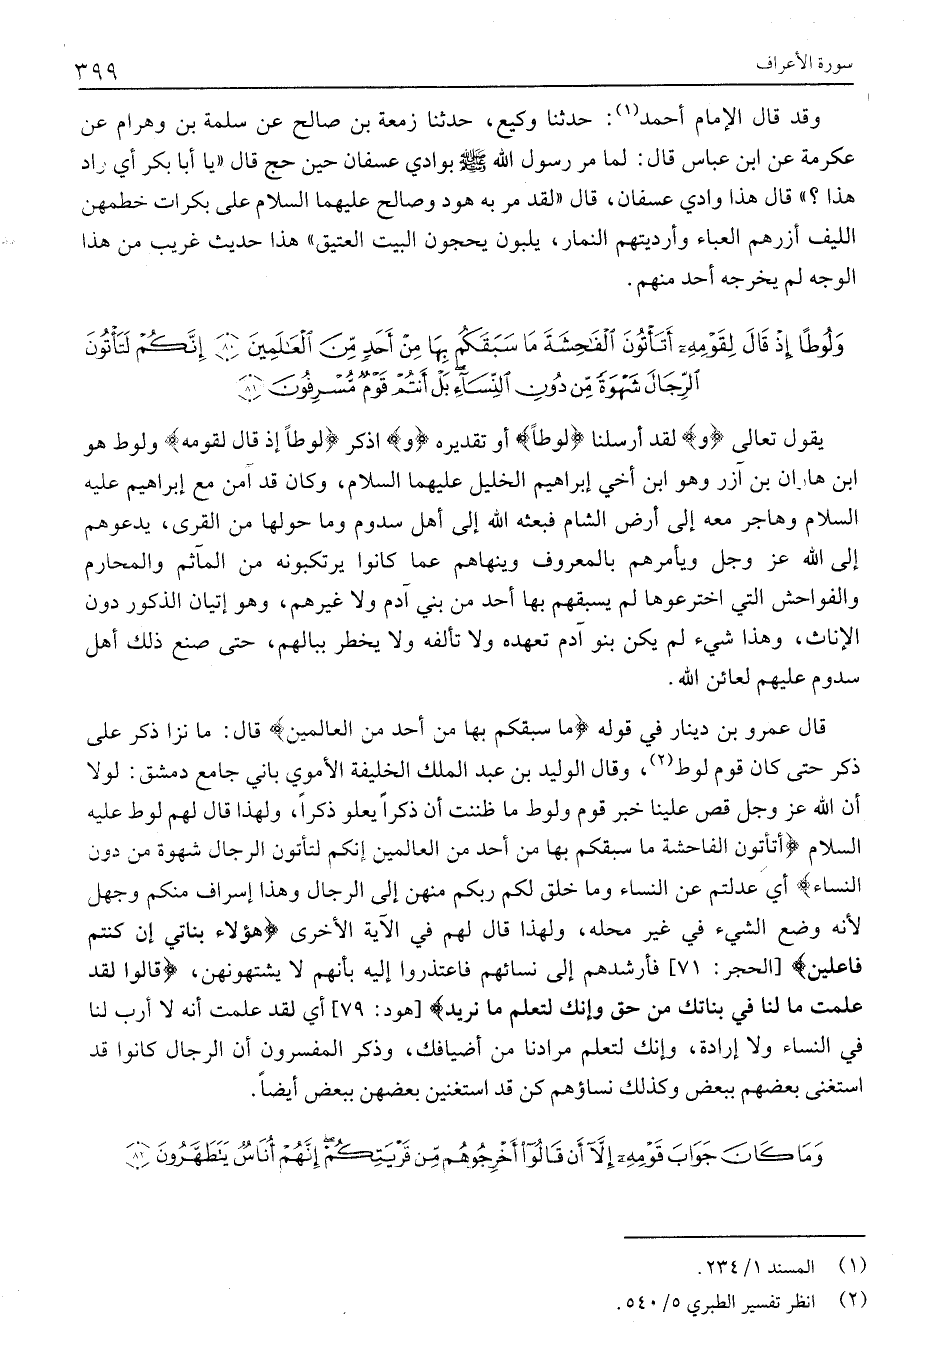 سورة الأعراف ٣٩٩
وقد قال الإمام أحمد(١): حدثنا وكيع، حدثنا زمعة بن صالح عن سلمة بن وهرام عن
عكرمة عن ابن عباس قال: لما مر رسول الله ﷺ بوادي عسفان حين حج قال «يا أبا بكر أي راد
هذا ؟» قال هذا وادي عسفان، قال «لقد مر به هود وصالح عليهما السلام على بكرات خطمهن
الليف أزرهم العباء وأرديتهم النمار، يلبون يحجون البيت العتيق» هذا حديث غريب من هذا
الوجه لم يخرجه أحد منهم.
وَلُوطًا إِذْ قَالَ لِقَوْمِهِۦٓ أَتَأْتُونَ ٱلْفَـٰحِشَةَ مَا سَبَقَكُم بِهَا مِنْ أَحَدٍ مِّنَ ٱلْعَـٰلَمِينَ ﴿٨٠﴾ إِنَّكُمْ لَتَأْتُونَ
ٱلرِّجَالَ شَهْوَةً مِّن دُونِ ٱلنِّسَآءِ ۚ بَلْ أَنتُمْ قَوْمٌ مُّسْرِفُونَ ﴿٨١﴾
يقول تعالى ﴿و﴾ لقد أرسلنا ﴿لوطاً﴾ أو تقديره ﴿و﴾ اذكر ﴿لوطاً إذ قال لقومه﴾ ولوط هو
ابن هاران بن آزر وهو ابن أخي إبراهيم الخليل عليهما السلام، وكان قد آمن مع إبراهيم عليه
السلام وهاجر معه إلى أرض الشام فبعثه الله إلى أهل سدوم وما حولها من القرى، يدعوهم
إلى الله عز وجل ويأمرهم بالمعروف وينهاهم عما كانوا يرتكبونه من المآثم والمحارم
والفواحش التي اخترعوها لم يسبقهم بها أحد من بني آدم ولا غيرهم، وهو إتيان الذكور دون
الإناث، وهذا شيء لم يكن بنو آدم تعهده ولا تألفه ولا يخطر ببالهم، حتى صنع ذلك أهل
سدوم عليهم لعائن الله.
قال عمرو بن دينار في قوله ﴿ما سبقكم بها من أحد من العالمين﴾ قال: ما نزا ذكر على
ذكر حتى كان قوم لوط(٢)، وقال الوليد بن عبد الملك الخليفة الأموي باني جامع دمشق: لولا
أن الله عز وجل قص علينا خبر قوم ولوط ما ظننت أن ذكراً يعلو ذكراً، ولهذا قال لهم لوط عليه
السلام ﴿أتأتون الفاحشة ما سبقكم بها من أحد من العالمين إنكم لتأتون الرجال شهوة من دون
النساء﴾ أي عدلتم عن النساء وما خلق لكم ربكم منهن إلى الرجال وهذا إسراف منكم وجهل
لأنه وضع الشيء في غير محله، ولهذا قال لهم في الآية الأخرى ﴿هؤلاء بناتي إن كنتم
فاعلين﴾ [الحجر: ٧١] فأرشدهم إلى نسائهم فاعتذروا إليه بأنهم لا يشتهونهن، ﴿قالوا لقد
علمت ما لنا في بناتك من حق وإنك لتعلم ما نريد﴾ [هود: ٧٩] أي لقد علمت أنه لا أرب لنا
في النساء ولا إرادة، وإنك لتعلم مرادنا من أضيافك، وذكر المفسرون أن الرجال كانوا قد
استغنى بعضهم ببعض وكذلك نساؤهم كن قد استغنين بعضهن ببعض أيضاً.
وَمَا كَانَ جَوَابَ قَوْمِهِۦٓ إِلَّآ أَن قَالُوٓا۟ أَخْرِجُوهُم مِّن قَرْيَتِكُمْ ۖ إِنَّهُمْ أُنَاسٌ يَتَطَهَّرُونَ ﴿٨٢﴾
(١) المسند ١/ ٢٣٤.
(٢) انظر تفسير الطبري ٥/ ٥٤٠.